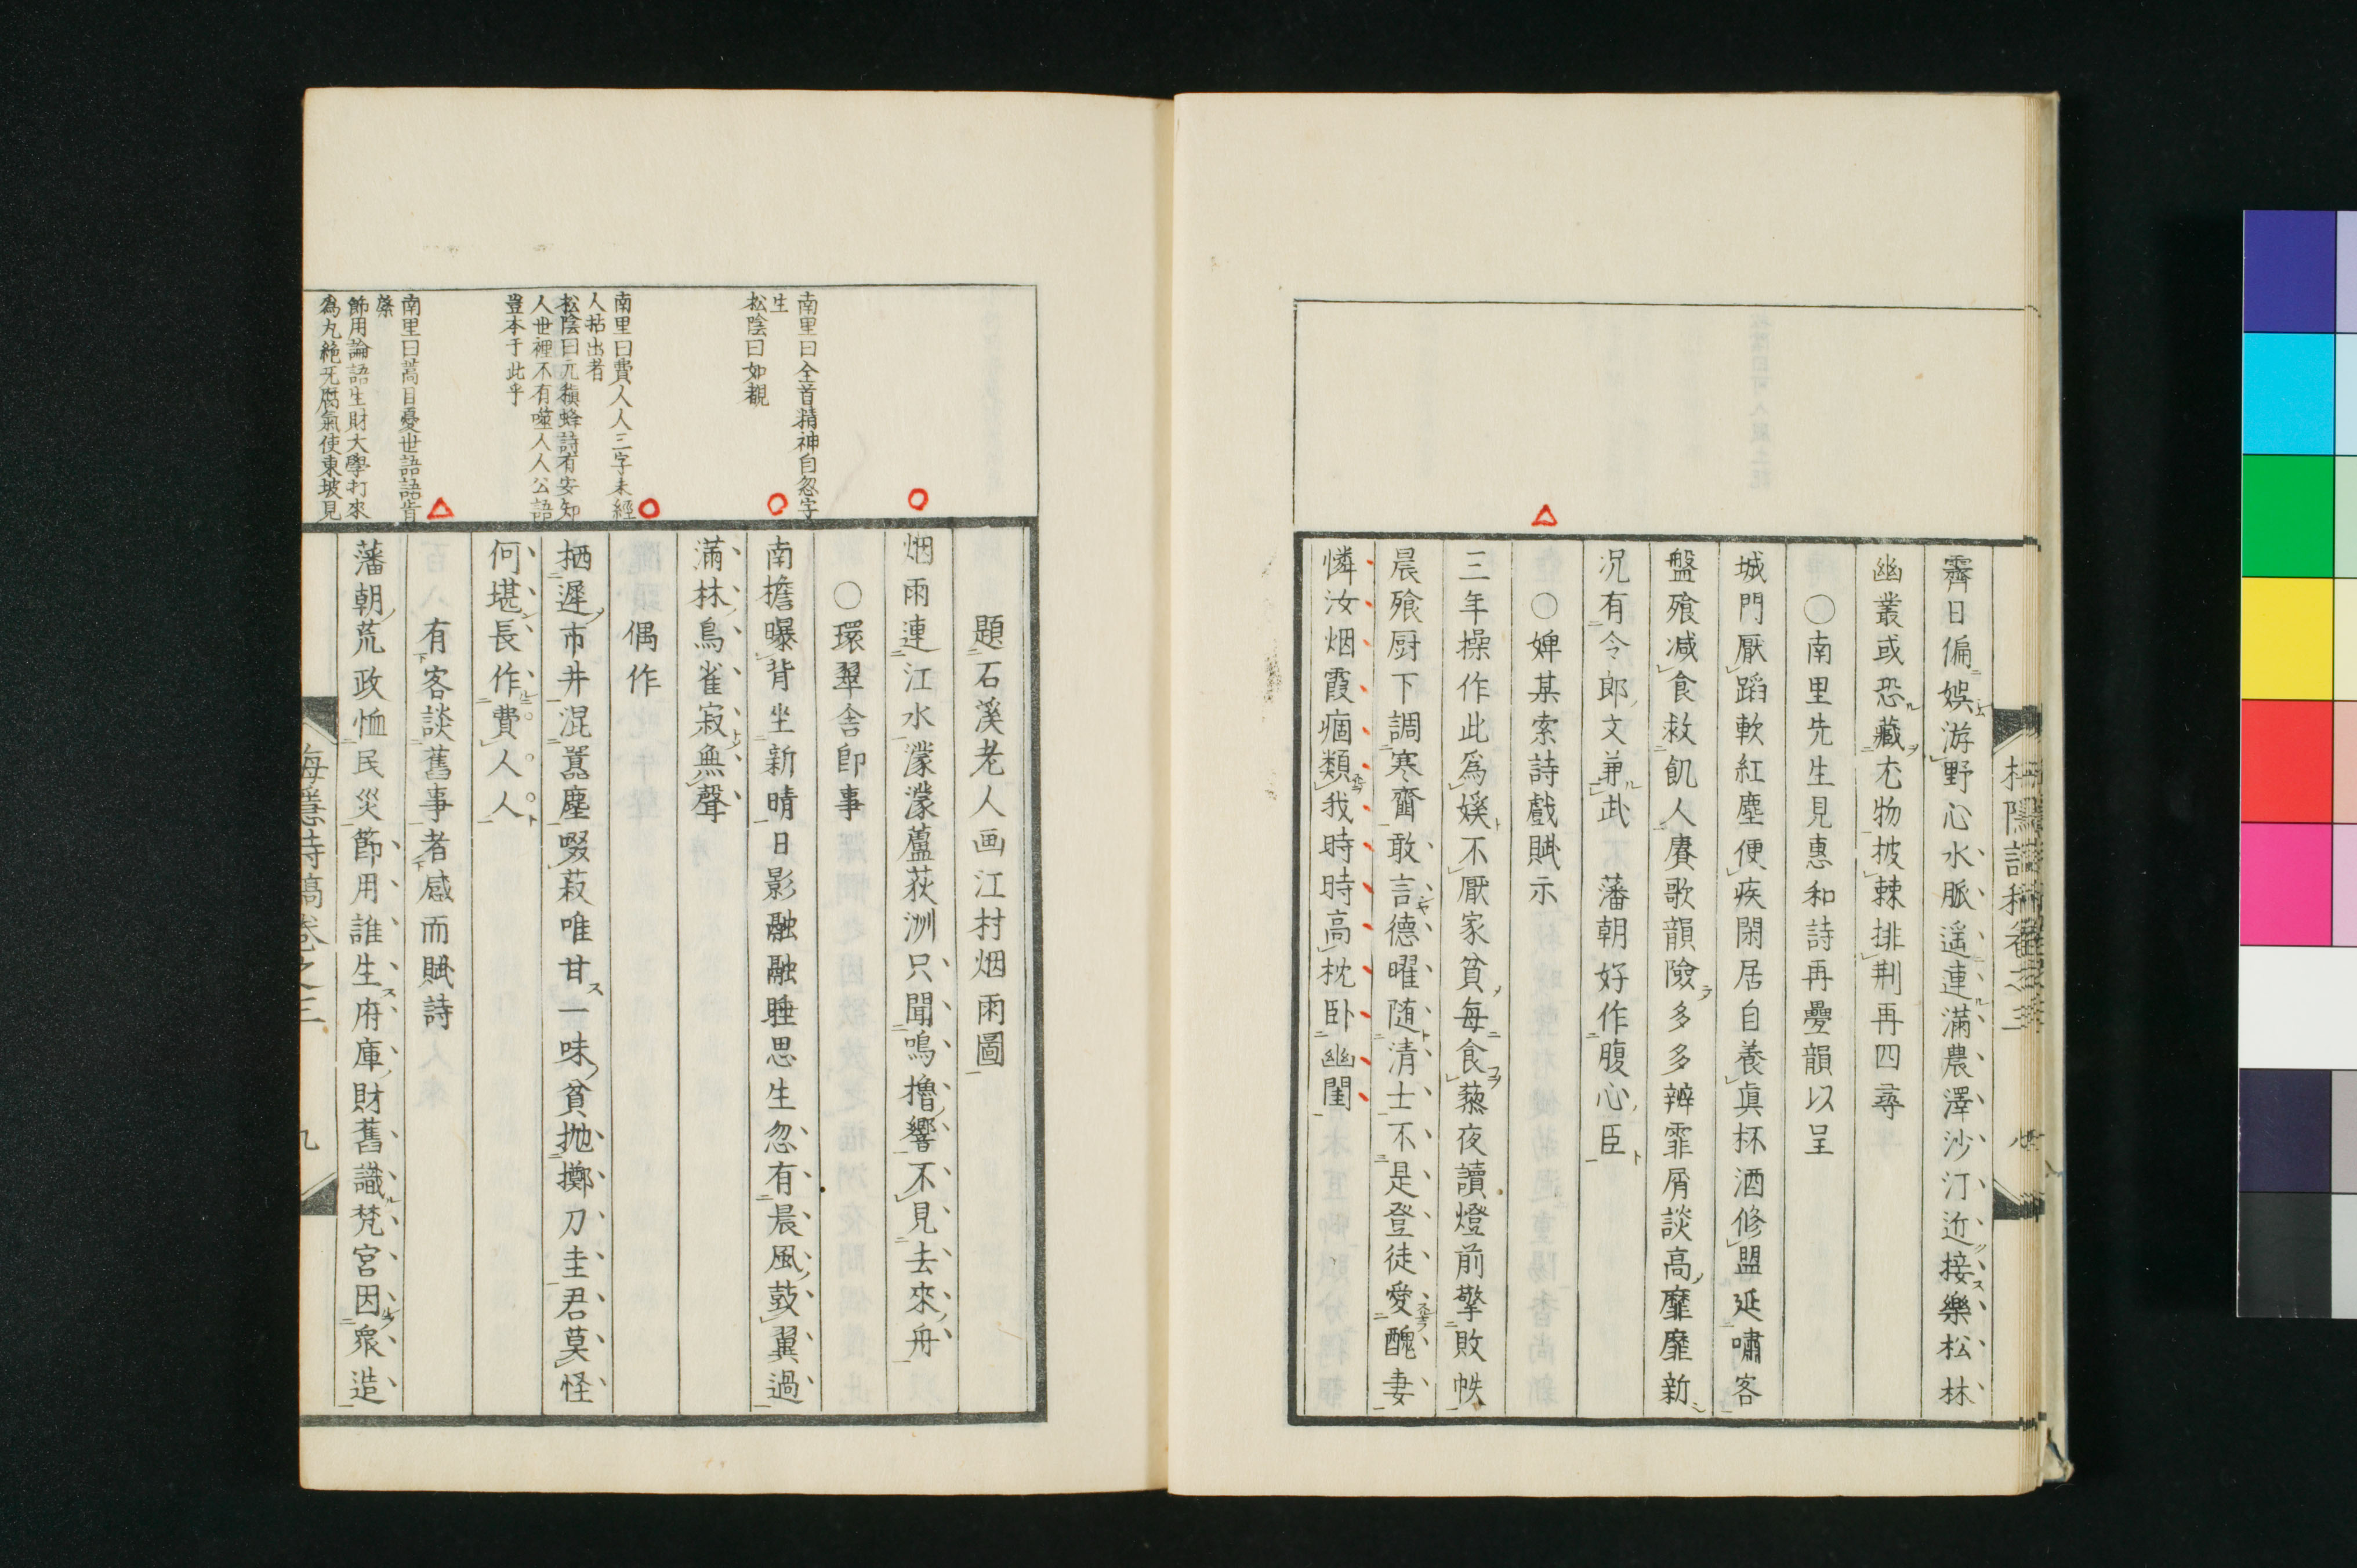 霽日偏娯游野心水脈遥連滿農澤沙汀近接樂松林
幽叢或恐藏尤物披棘排荆再四尋
○南里先生見惠和詩再疊韻以呈
城門厭蹈軟紅塵便疾閑居自養眞杯酒修盟延嘯客
盤飱減食救飢人賡歌韻險多多辨霏屑談高靡靡新
況有令郎文兼武 藩朝好作腹心臣
○婢某索詩戲賦示
三年操作此爲媄不厭家貧每食藜夜讀燈前擎敗帙
晨飱厨下調寒齏敢言德曜随清士不是登徒愛醜妻
憐汝烟霞痼類我時時高枕卧幽閨
題石溪老人画江村烟雨圖
烟雨連江水濛濛蘆荻洲只聞鳴擼響不見去來舟
○環翠舍即事
南檐曝背坐新晴日影融融睡思生忽有晨風鼓翼過
滿林鳥雀寂無聲
偶作
栖遲市井混囂塵啜菽唯甘一味貧抛擲刀圭君莫怪
何堪長作費人人
有客談舊事者感而賦詩
藩朝荒政恤民災節用誰生府庫財舊識梵宮因衆造
梅隱詩稿卷之三 九
南里曰全首精神自忽字
生
松陰曰如覩
南里曰費人人三字未經
人拈出者
松陰曰元稹蜂詩有安知
人世裡不有噬人人公語
豈本于此乎
南里曰蒿目憂世語語肯
綮
節用論語生財大學打來
為丸絶无腐氣使東坡見